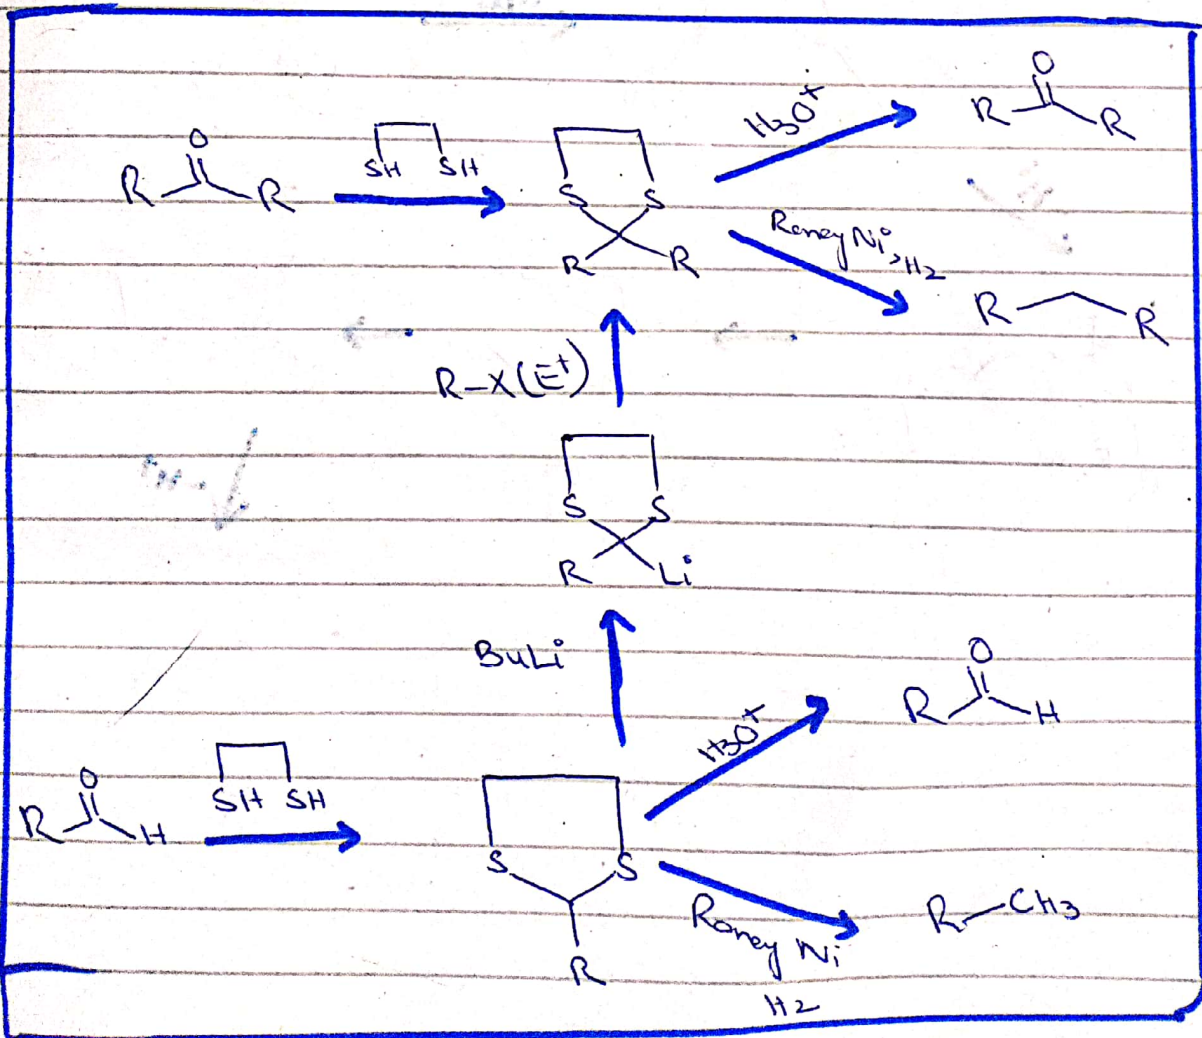 O
R R
SH SH
S S
R R
H3O+
O
R R
Raney Ni, H2
R R
R-X(E+)
S S
R Li
BuLi
O
R H
SH SH
S S
R
H3O+
O
R H
Raney Ni
H2
R-CH3